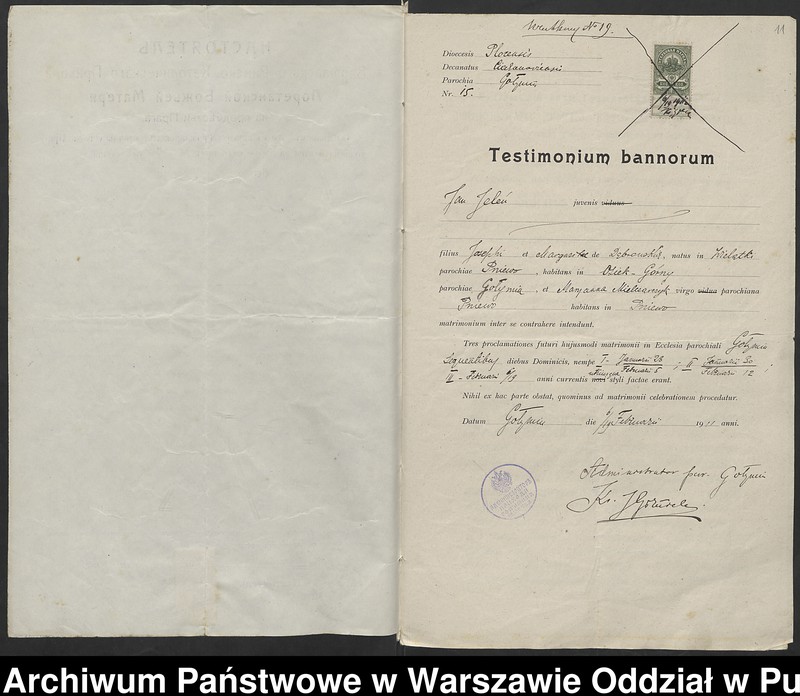 № 19.
11
Dioecesis Plocensis
Decanatus Ciechanoviensis
Parochia Gołymin
Nr. 15.
Testimonium bannorum
Jan Jeleń juvenis viduus
filius Josephi et Margaritae de Dąbrowska, natus in
parochiae Pniewo, habitans in Osiek-Górny
parochiae Gołymin, et Maryanna Mielczarczyk virgo vidua parochiana
Pniewo habitans in Pniewo
matrimonium inter se contrahere intendunt.
Tres proclamationes futuri hujusmodi matrimonii in Ecclesia parochiali Gołymin
sequentibus diebus Dominicis, nempe I- Januarii 23 Februarii 5 ; II Januarii 30 Februarii 12 ;
Februarii 6/19 anni currentis novi styli factae erant.
Nihil ex hac parte obstat, quominus ad matrimonii celebrationem procedatur.
Datum Gołymin die Februarii 1911 anni.
Administrator par. Gołymin
Ks. J
Archiwum Państwowe w Warszawie Oddział w Pu